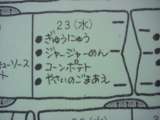 23(水)
●ぎゅうにゅう
●ジャージャーめん
ューソース
●コーンポテト
●やさいのごまあえ